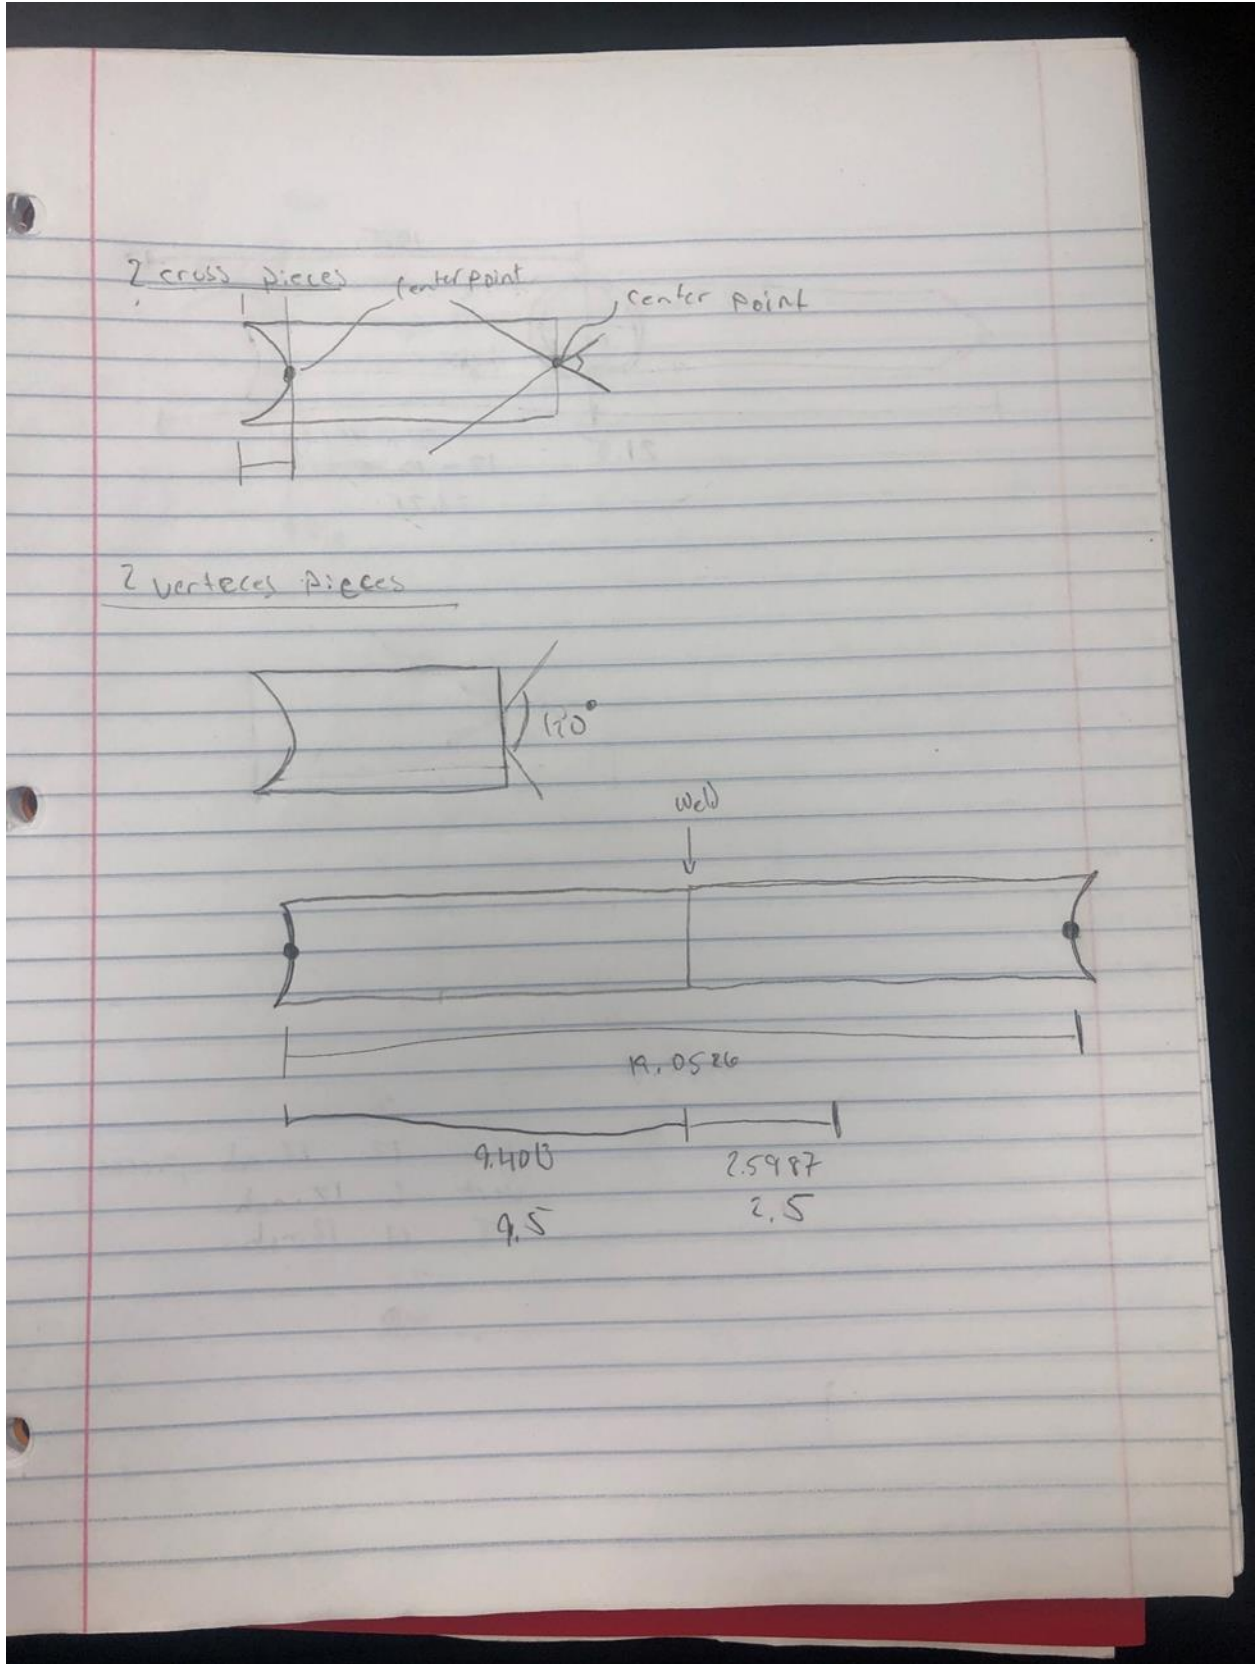 2 cross pieces
centerpoint
center point
2 verteces pieces
120°
weld
19.0526
9.4013
2.5987
9.5
2.5